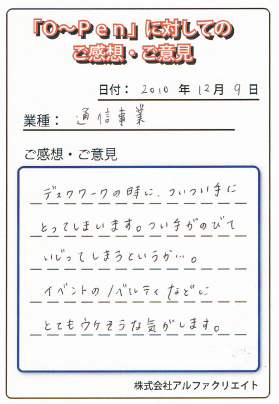 「O～Pen」に対しての
ご感想・ご意見
日付： 2010 年 12 月 9 日
業種： 通信事業
ご感想・ご意見
デスクワークの時に、ついつい手に
とってしまいます。つい手がのびて
いじってしまうというか…。
イベントのノベルティなどに
とてもウケそうな気がします。
株式会社アルファクリエイト